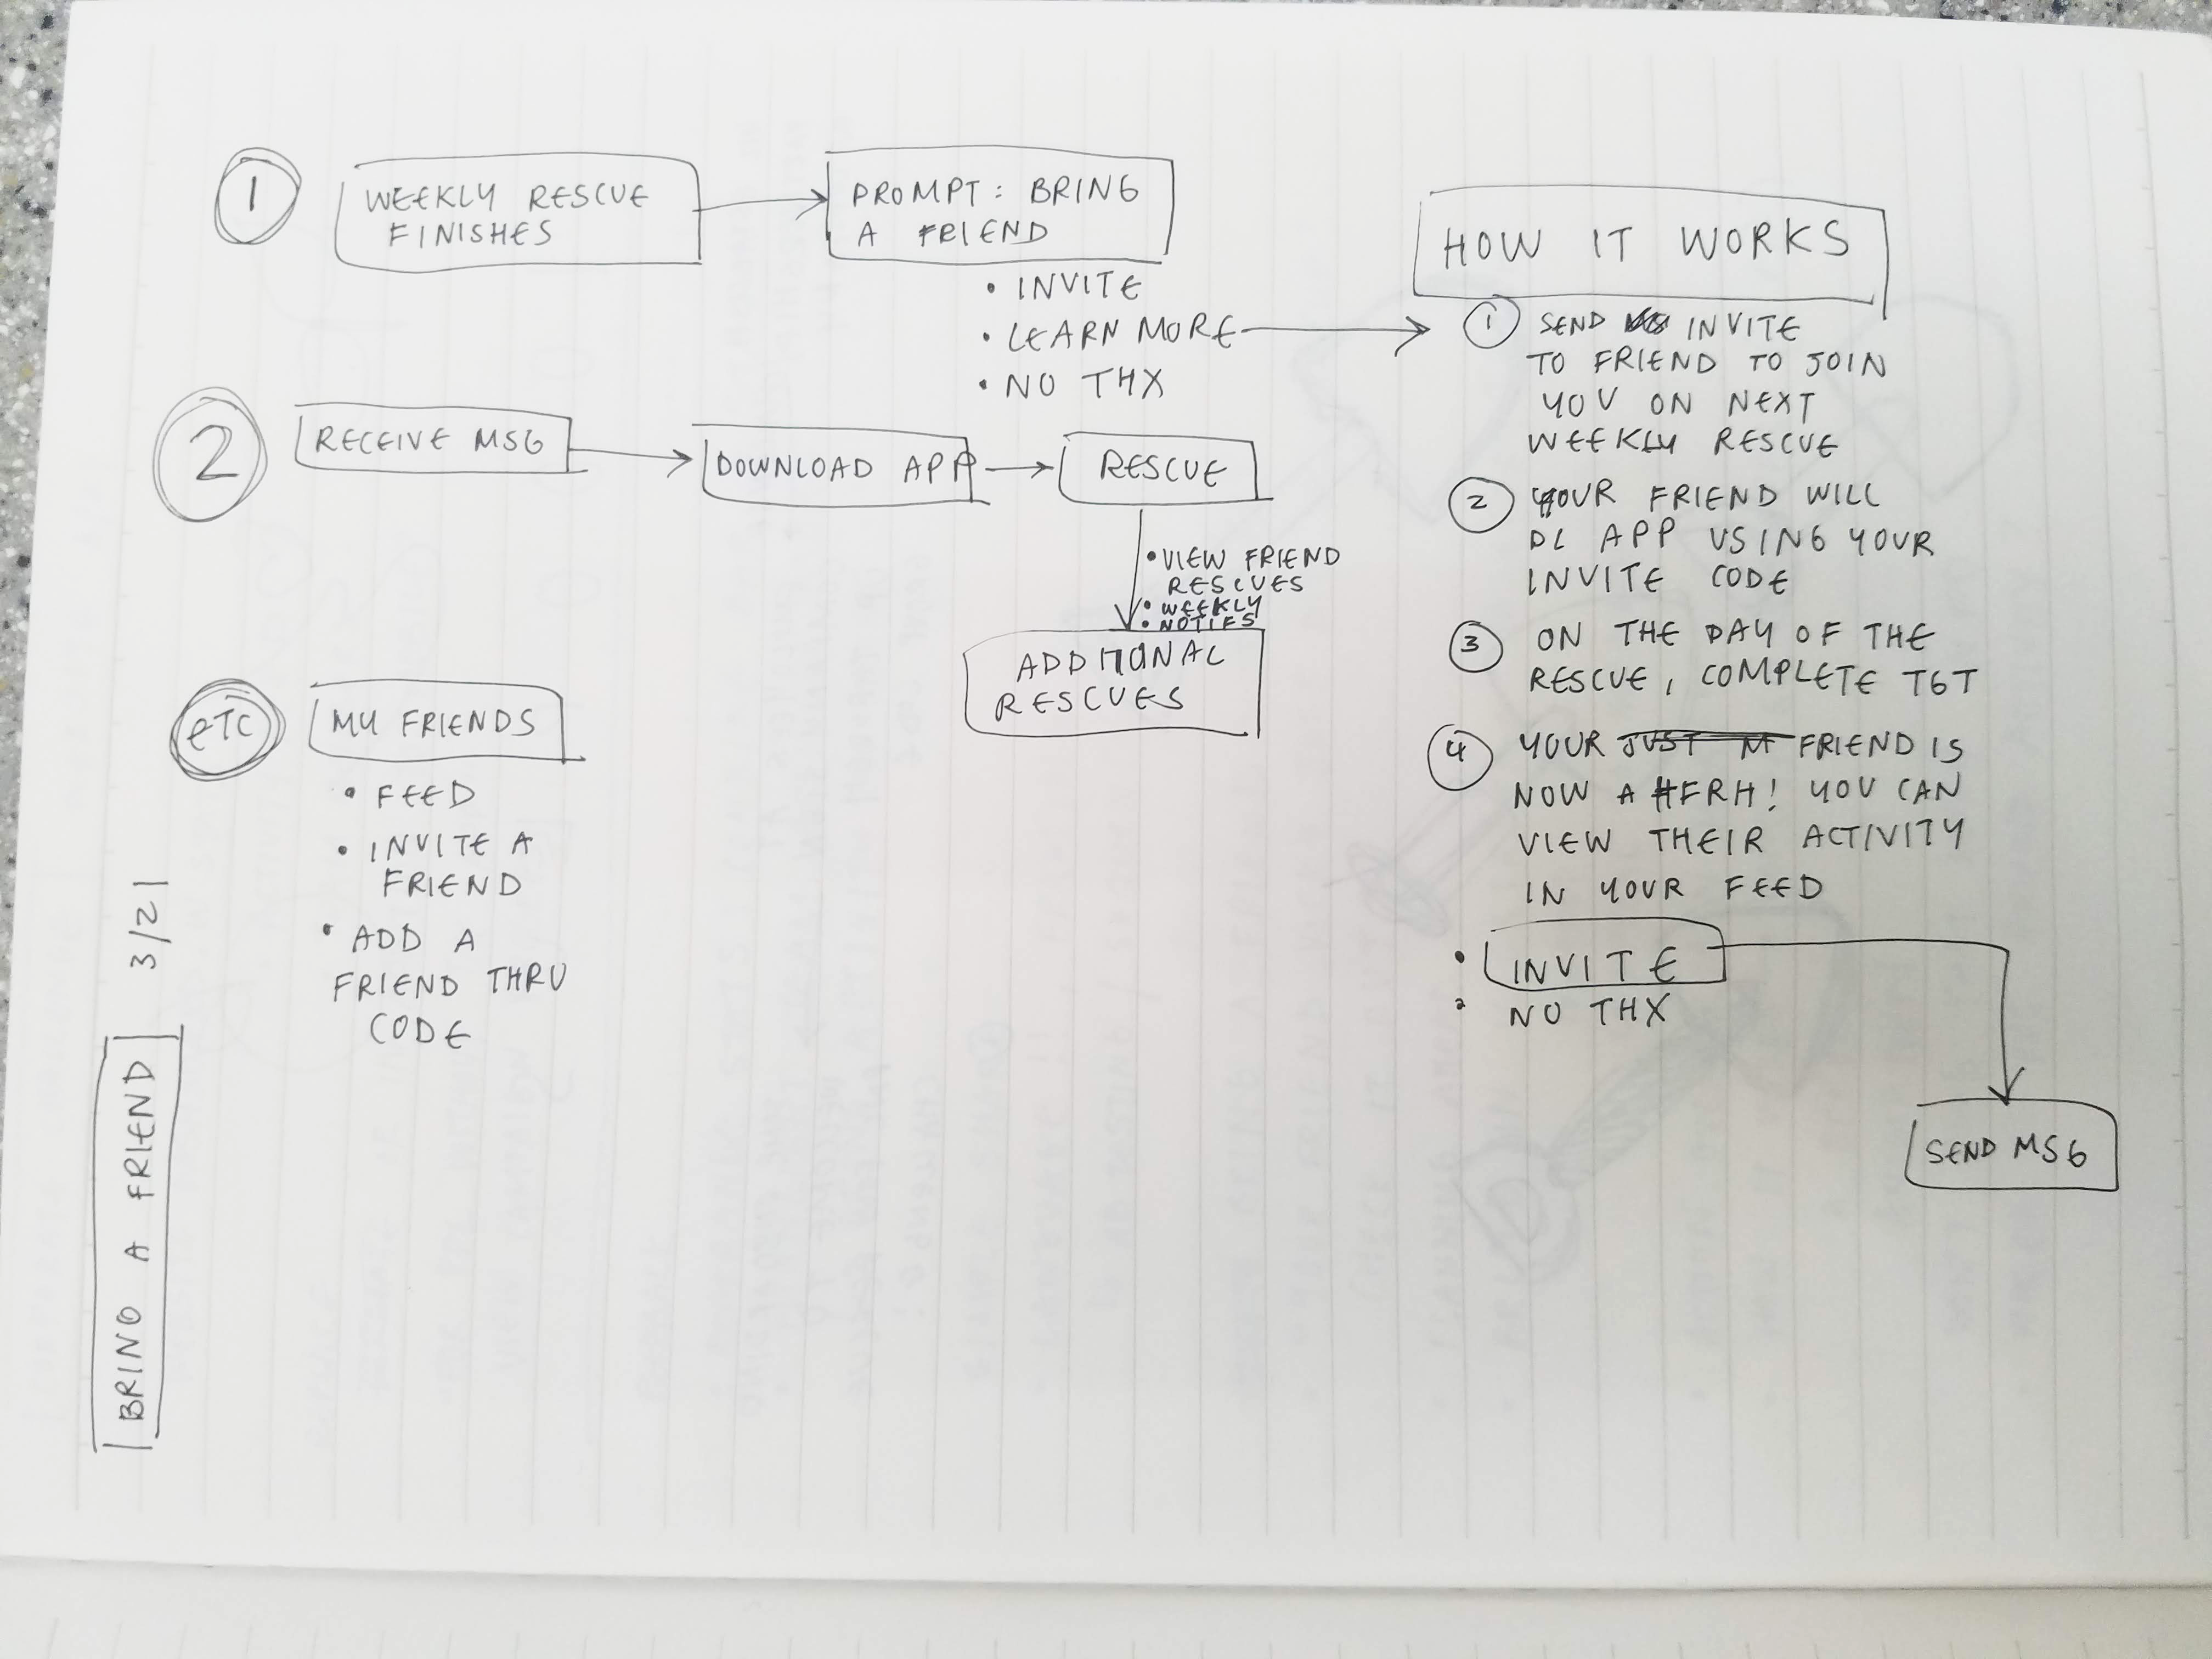 1
WEEKLY RESCUE
FINISHES
PROMPT: BRING
A FRIEND
• INVITE
• LEARN MORE
• NO THX
HOW IT WORKS
1 SEND INVITE
TO FRIEND TO JOIN
YOU ON NEXT
WEEKLY RESCUE
2 YOUR FRIEND WILL
DL APP USING YOUR
INVITE CODE
3 ON THE DAY OF THE
RESCUE, COMPLETE TGT
4 YOUR JUST M FRIEND IS
NOW A #FRH! YOU CAN
VIEW THEIR ACTIVITY
IN YOUR FEED
• INVITE
• NO THX
SEND MSG
2
RECEIVE MSG
DOWNLOAD APP
RESCUE
• VIEW FRIEND
RESCUES
• WEEKLY
• NOTIFS
ADDITIONAL
RESCUES
etc
MY FRIENDS
• FEED
• INVITE A
FRIEND
• ADD A
FRIEND THRU
CODE
BRING A FRIEND 3/21